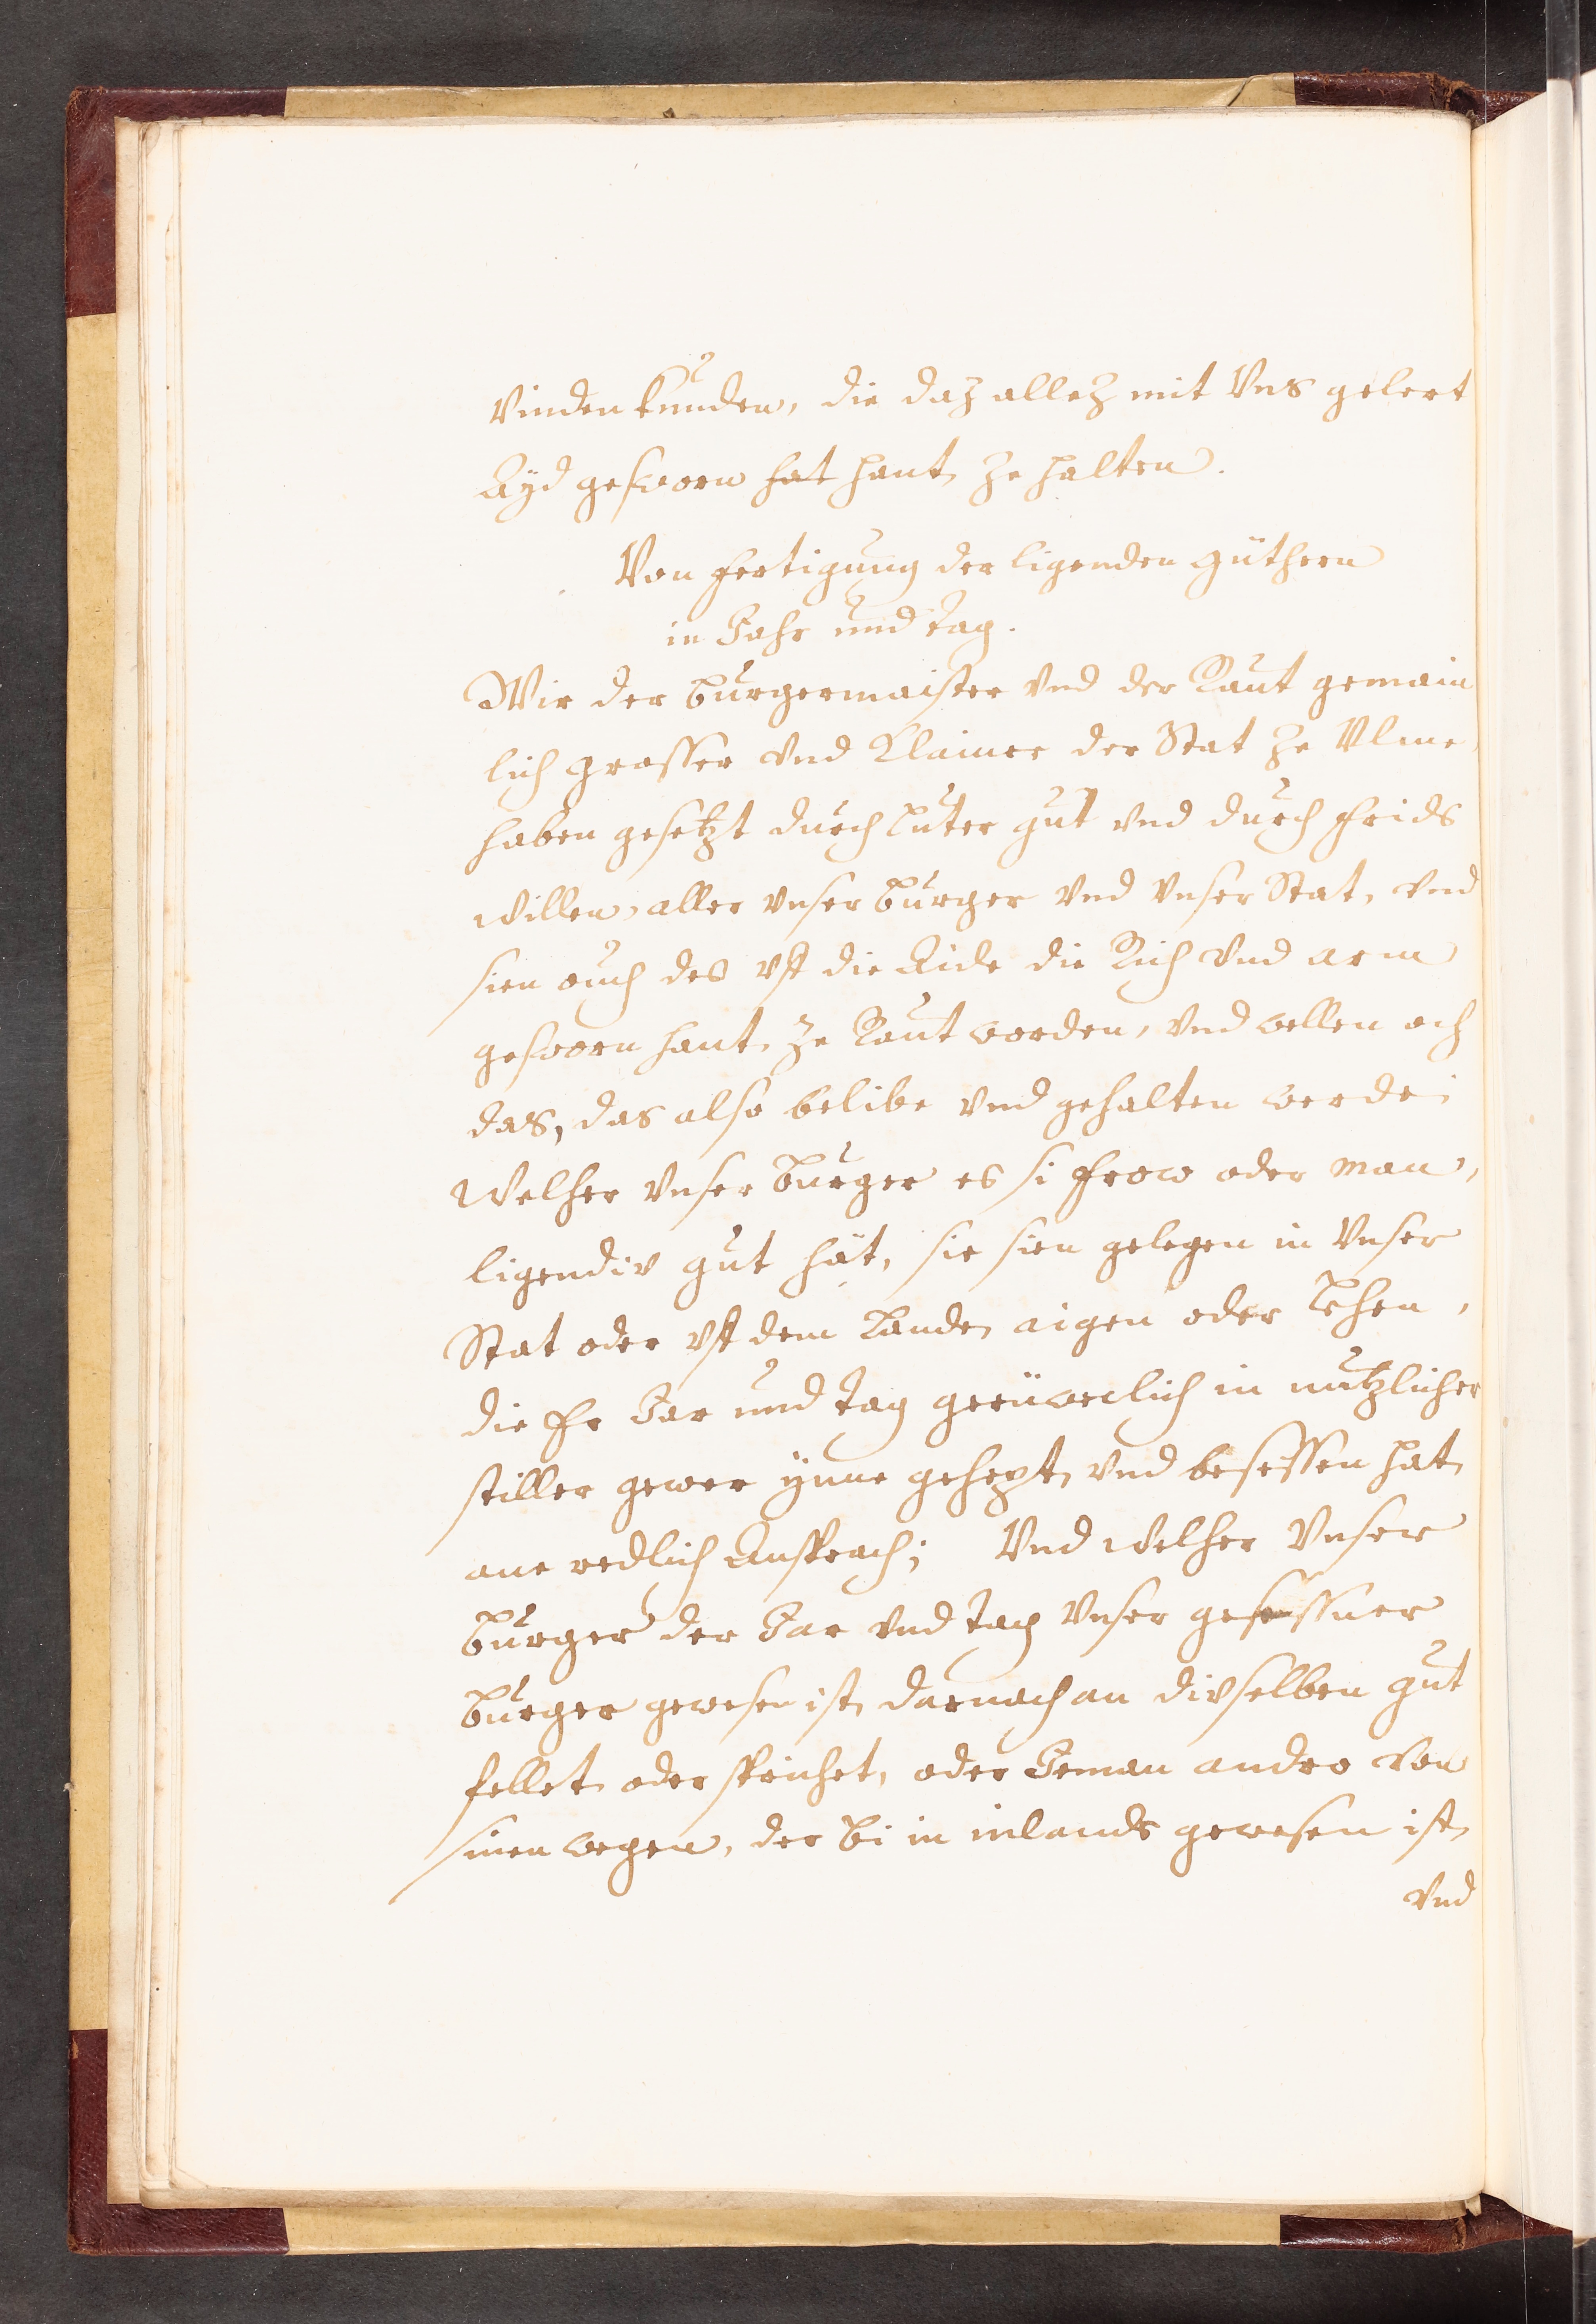 vinden kunden, die daz allez mit Vns gelert
Ayd gesworn hat hant ze halten.
Von fertigung der ligenden güthern
in Jahr und tag.
Wir der burgermaister vnd der Raut gemain
lich grosser vnd klainer der Stat ze Ulme,
haben gesetzt durch luter gut vnd durch frids
willen, aller vnser burger vnd vnser Stat, vnd
sien ouch des vff die Aide die Rich vnd arm
gesworn hant, ze Raut worden, vnd wellen och
das, das also belibe vnd gehalten werde:
Welher vnser burger es si frow oder man,
ligendiv gut hät, sie sien gelegen in vnser
Stat oder vff dem Lande, aigen oder Lehen,
die Er Jar und tag gerüweclich in nutzlicher
stiller gewer ynne gehept, vnd besessen hat,
ane redlich Ansprach; Vnd welher vnser
burger der Jar vnd tag vnser gesessner
burger gewesen ist, darnach an divselben gut
fellet oder sprichet, oder Jeman andro von
sinen wegen, der bi in inlands gewesen ist,
vnd